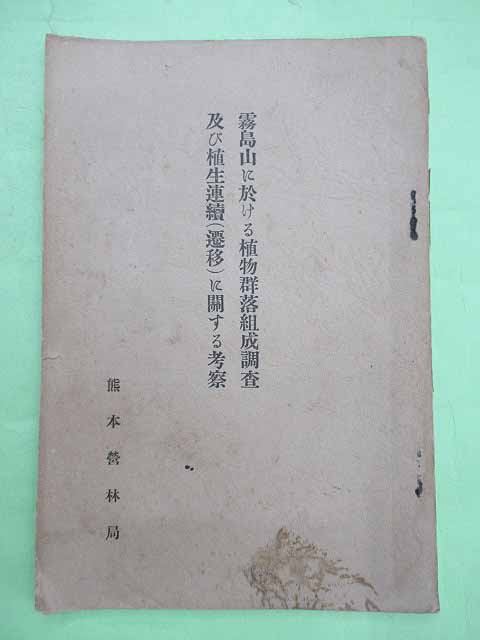 霧島山に於ける植物群落組成調査
及び植生連續(遷移)に關する考察
熊本營林局